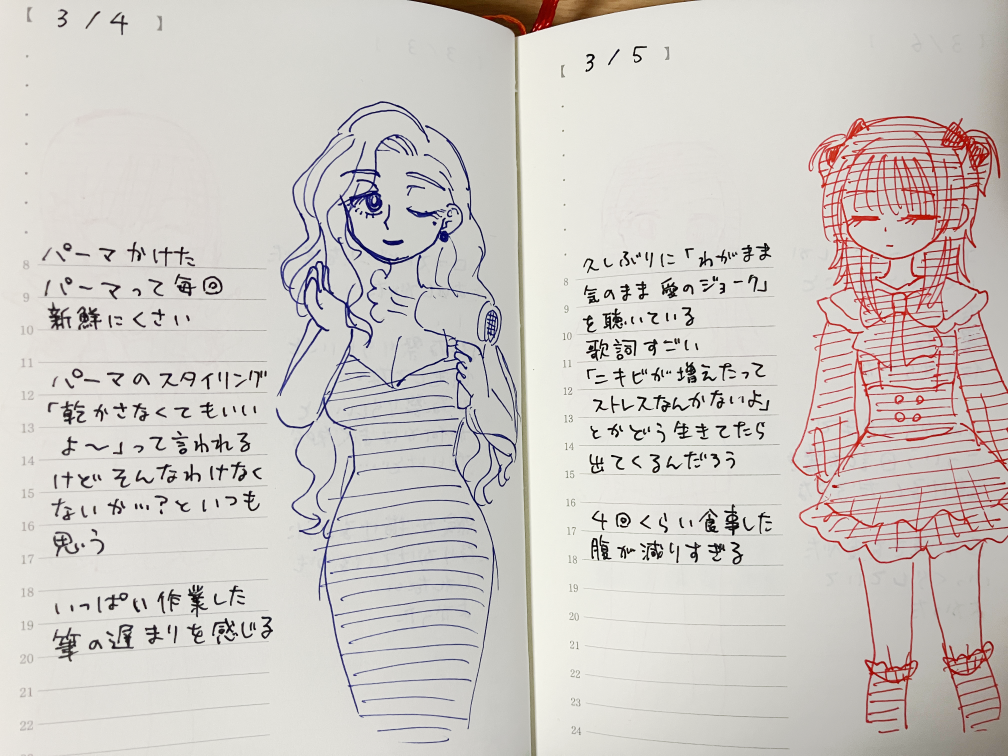 【 3 / 4 】
8
9
10
11
12
13
14
15
16
17
18
19
20
21
22
パーマかけた
パーマって毎回
新鮮にくさい
パーマのスタイリング
「乾かさなくてもいい
よ〜」って言われる
けどそんなわけなく
ないか…?といつも
思う
いっぱい作業した
筆の遅まりを感じる
【 3 / 5 】
8
9
10
11
12
13
14
15
16
17
18
19
20
21
22
23
24
久しぶりに「わがまま
気のまま 愛のジョーク」
を聴いている
歌詞すごい
「ニキビが増えたって
ストレスなんかないよ」
とかどう生きてたら
出てくるんだろう
4回くらい食事した
腹が減りすぎる